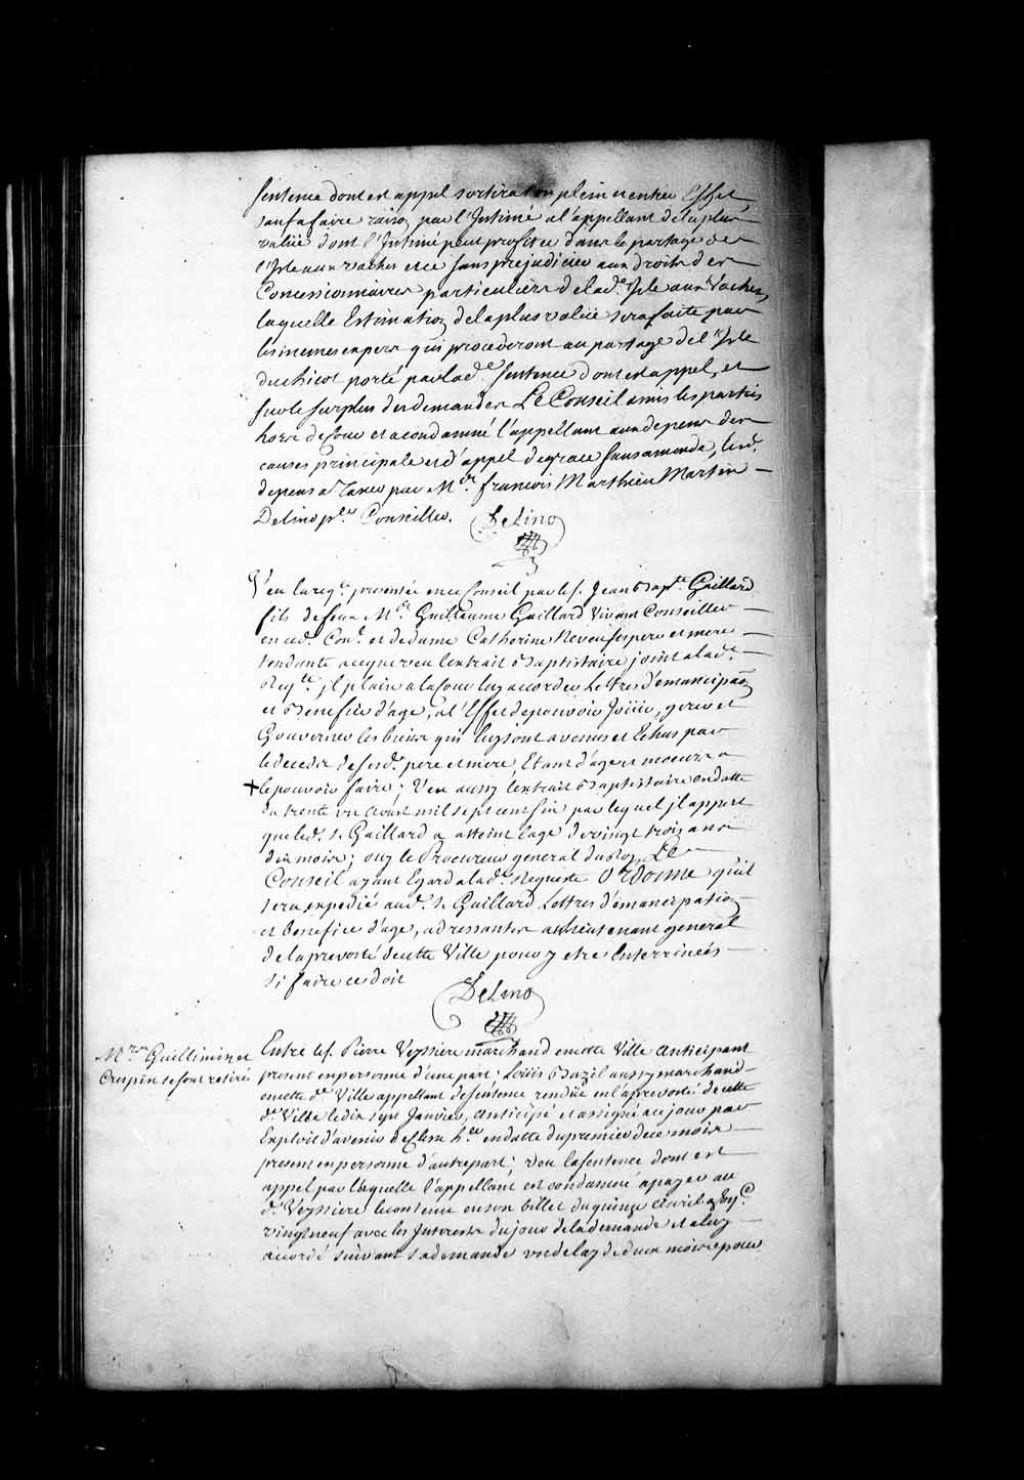 Sentence dont est appel sortira son plein et entier Effet
sauf a faire raison par l'Intimé a l'appellant de la plus
valüe dont l'Intimé peut profiter dans le partage de
l'Isle aux vaches et ce sans prejudicier aux droits des
Concessionnaires particuliers de lad.e Isle aux Vaches,
laquelle Estimation de la plus valüe sera faite par
les memes experts qui procederont au partage de l'Isle
du chicot porté par lad.e Sentence dont est appel, et
sur le surplus des demandes Le Conseil a mis les parties
hors de Cour et a condamné l'appellant aux depens des
causes principale et d'appel de grace sans amende, lesd.
depens a Taxer par M.e françois Mathieu Martin
Delino p.er Conseiller. Delino
Veu la reg.te presentée en ce Conseil par le s. Jean Bap.te Gaillard
fils de feu M.e Guillaume Gaillard Vivant Conseiller
en ced. Con.l et de dame Catherine Neveu ses pere et mere
tendante a ce que veu l'extrait Baptistaire joint a lad.e
Req.te jl plaise a la Cour luy accorder Lettres d'emancipaon
et Benefice d'age, a l'Effet de pouvoir Joüir, gerer et
Gouverner les biens qui luy sont avenus et Echus par
le decedes de sesd. pere et mere Etant d'age et moeurs a
+ le pouvoir faire; Veu aussy l'extrait Baptistaire en datte
du trente un Aoust mil sept cent six par lequel jl appert
que led. s. Gaillard a atteint l'age de vingt trois ans
dix mois; ouy le Procureur general du Roy, Le
Conseil ayant Egard a lad.e Requeste Ordonne qu'il
sera expedié aud. s. Gaillard Lettres d'emancipation
et benefice d'age, adressantes au lieutenant general
de la prevosté de cette Ville pour y etre Enterrinées
si faire ce doit
Delino
M.rs Guillimin et
Crespin se sont retirés
Entre le s. Pierre Veyssiere marchand en cette Ville Anticipant
present en personne d'une part; Loüis Bazil aussy marchand
en cette d.e Ville appellant de sentence rendüe en la prevosté de cette
d.e Ville le dix sept Janvier, Anticipé et assigné a ce jour par
Exploit d'avenir h.er en datte du premier de ce mois
present en personne d'autre part; Veu la sentence dont est
appel par laquelle l'appellant est condamné a payer au
d. Veyssiere le contenu en son billet du quinze Avril
vingt neuf avec les Interests du jour de la demande et a luy
accordé suivant sa demande un delay de deux mois pour